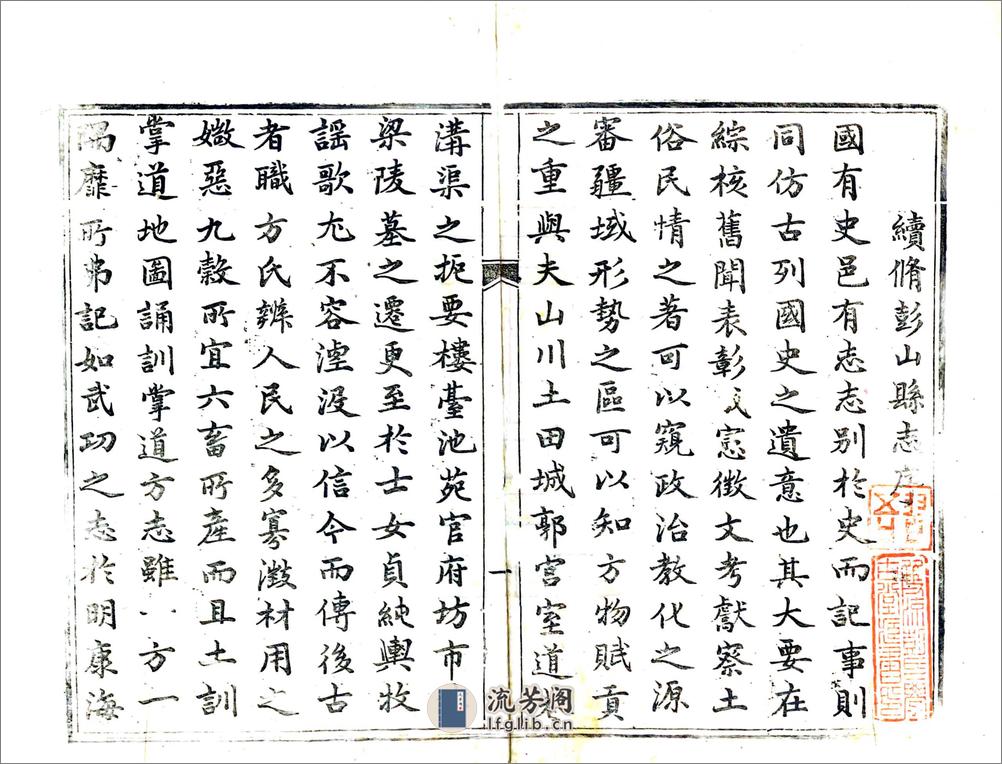 續脩彭山縣志序
國有史邑有志志別於史而記事則
同仿古列國史之遺意也其大要在
綜核舊聞表彰憲徵文考獻察土
俗民情之著可以窺政治教化之源
審疆域形勢之區可以知方物賦貢
之重與夫山川土田城郭宮室道
溝渠之扼要樓臺池苑官府坊市
梁陵墓之遷更至於士女貞純輿牧
謡歌尤不容湮沒以信今而傳後古
者職方氏辨人民之多寡濈材用之
媺惡九穀所宜六畜所產而且土訓
掌道地圖誦訓掌道方志雖一方一
隅靡所弗記如武功之志於明康海
一
流芳阁
lfglib.cn